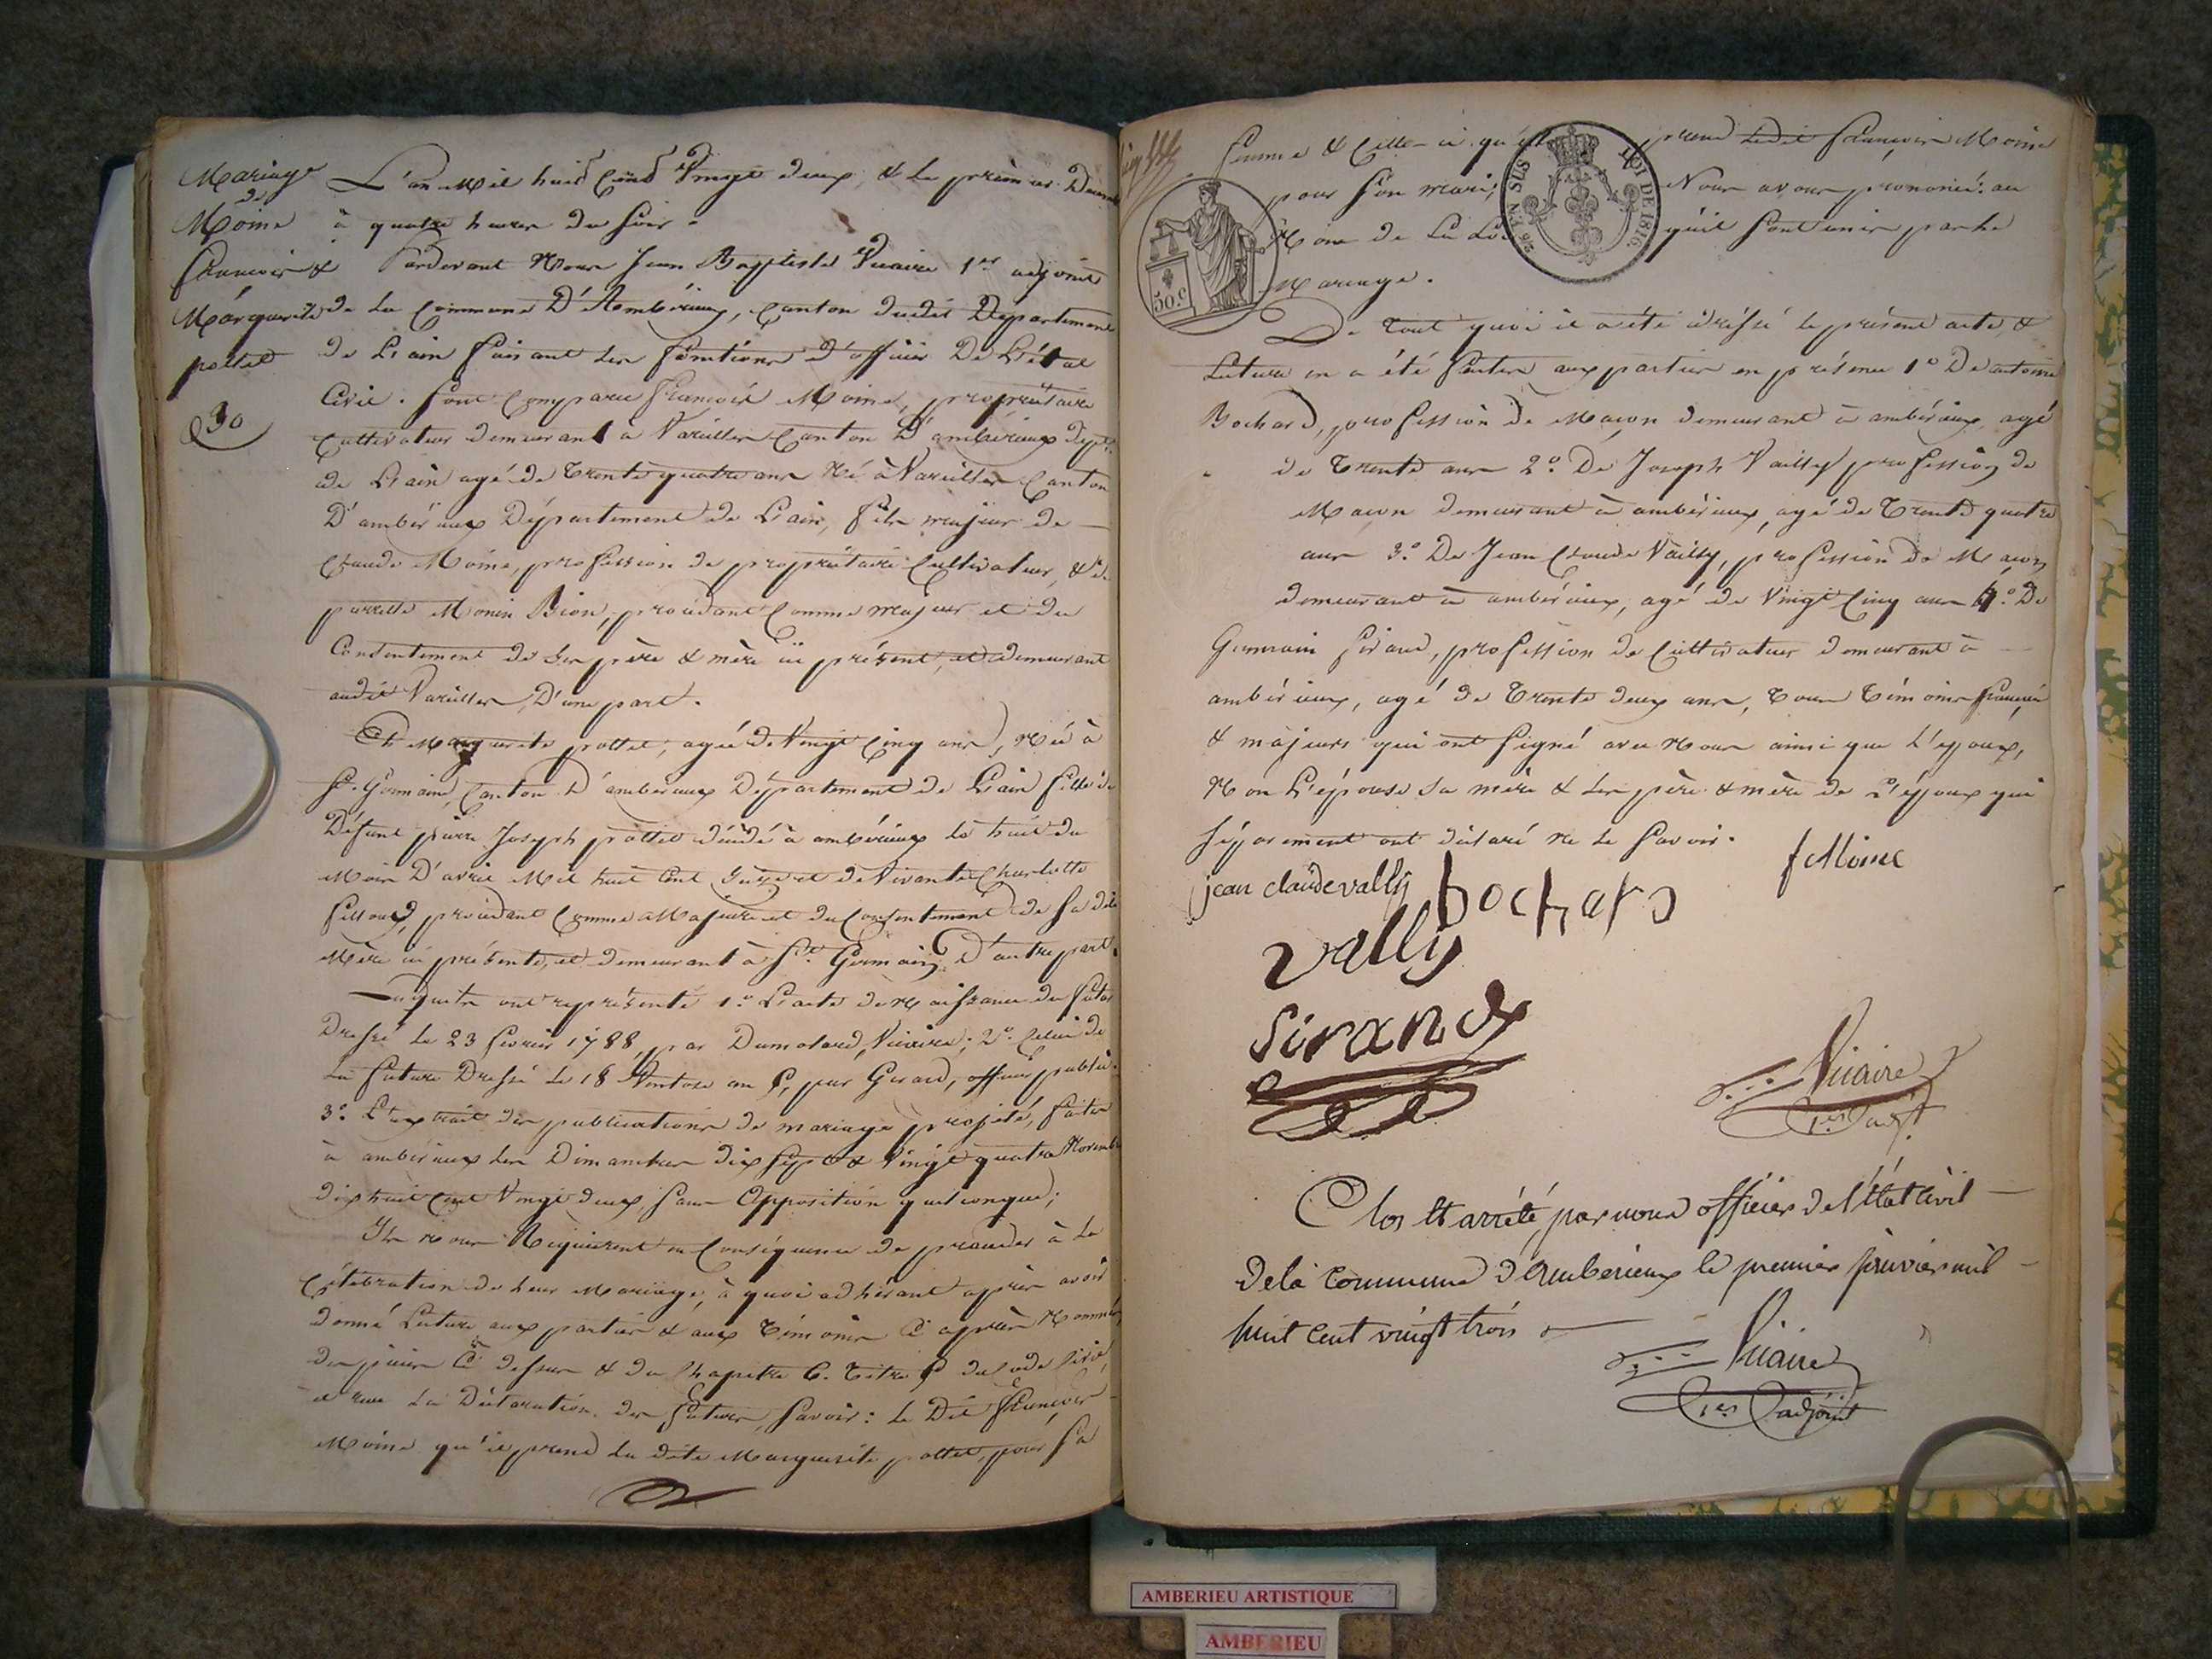 Mariage
de
Moine
François &
Marguerite
pottet
30
L'an Mil huit Cent Vingt deux, & le premier
à quatre heures du soir.
Pardevant Nous Jean Baptiste Vicaire 1er adjoint
de la Commune D'Ambérieux, Canton dudit Département
de L'ain faisant les fonctions d'officier De L'état
Civil. sont comparu François Moine, propriétaire
Cultivateur demeurant à Vareilles Canton D'ambérieux Dépt.
de L'ain agé de Trente quatre ans Né à Vareilles Canton
D'ambérieux Département de L'ain, fils majeur de
Claude Moine, profession de propriétaire Cultivateur, & de
Monin Bion, procédant Comme majeur et du
Consentement de ses père & mère ici présent, et demeurant
audit Vareilles, D'une part.
Et Marguerite pottet, agée de Vingt Cinq ans, Née à
St. Germain, Canton D'ambérieux Département de L'ain fille de
Défunt pierre Joseph pottet décédé à ambérieux le huit du
Mois D'avril Mil huit Cent et de Vivante Charlotte
procédant Comme Majeure et du Consentement de sa dite
Mère ici présente, et demeurant à St. Germain D'autre part.
Lesquels ont représenté 1.o L'acte de Naissance du futur
Dressé le 23 février 1788, par Dumolard, Vicaire; 2.o Celui de
La future Dressé Le 18 Ventose an 5, par Girard, officier public.
3.o L'extrait des publications de mariage projeté, faites
à ambérieux les Dimanches dix sept & Vingt quatre Novembre
dix huit cent Vingt deux, sans Opposition quelconque;
Ils Nous Requièrent en Conséquence de procéder à la
Célébration de leur Mariage, à quoi adhérant après avoir
donné Lecture aux parties & aux Témoins Ci après Nommés
des pièces Ci dessus & du Chapitre 6. Titre 5 du Code Civil,
et reçu La Déclaration des futurs, savoir: Le Dit François
Moine qu'il prend la dite Marguerite pottet, pour sa
femme & Celle-ci qu'elle prend ledit François Moine
pour son mari; Nous avons prononcé au
Nom de La Loi qu'ils sont unis par le
Mariage.
50.c
TIMB. EN SUS
LOI DE 1816
De tout quoi il a été dressé le présent acte, &
Lecture en a été faite aux parties en présence 1.o De antoine
Bochard, profession de Maçon demeurant à ambérieux, agé
de Trente ans 2.o De Joseph Vailly profession de
Maçon demeurant à ambérieux, agé de Trente quatre
ans 3.o De Jean Claude Vailly, profession de Maçon
demeurant à ambérieux, agé de Vingt Cinq ans 4.o De
Germain Sirand, profession de Cultivateur demeurant à
ambérieux, agé de Trente deux ans, Tous Témoins français
& majeurs qui ont signé avec Nous ainsi que L'époux,
Non L'épouse sa mère & les père & mère de L'époux qui
séparément ont déclaré ne le savoir.
f Moine
jean claude vally
bochard
vally
Sirand
Vicaire
1er adjt
Clos et arrêté, par nous officier de l'état civil
de la commune d'Ambérieux le premier janvier mil
huit cent vingt trois
Vicaire
1er adjoint
AMBERIEU ARTISTIQUE
AMBERIEU